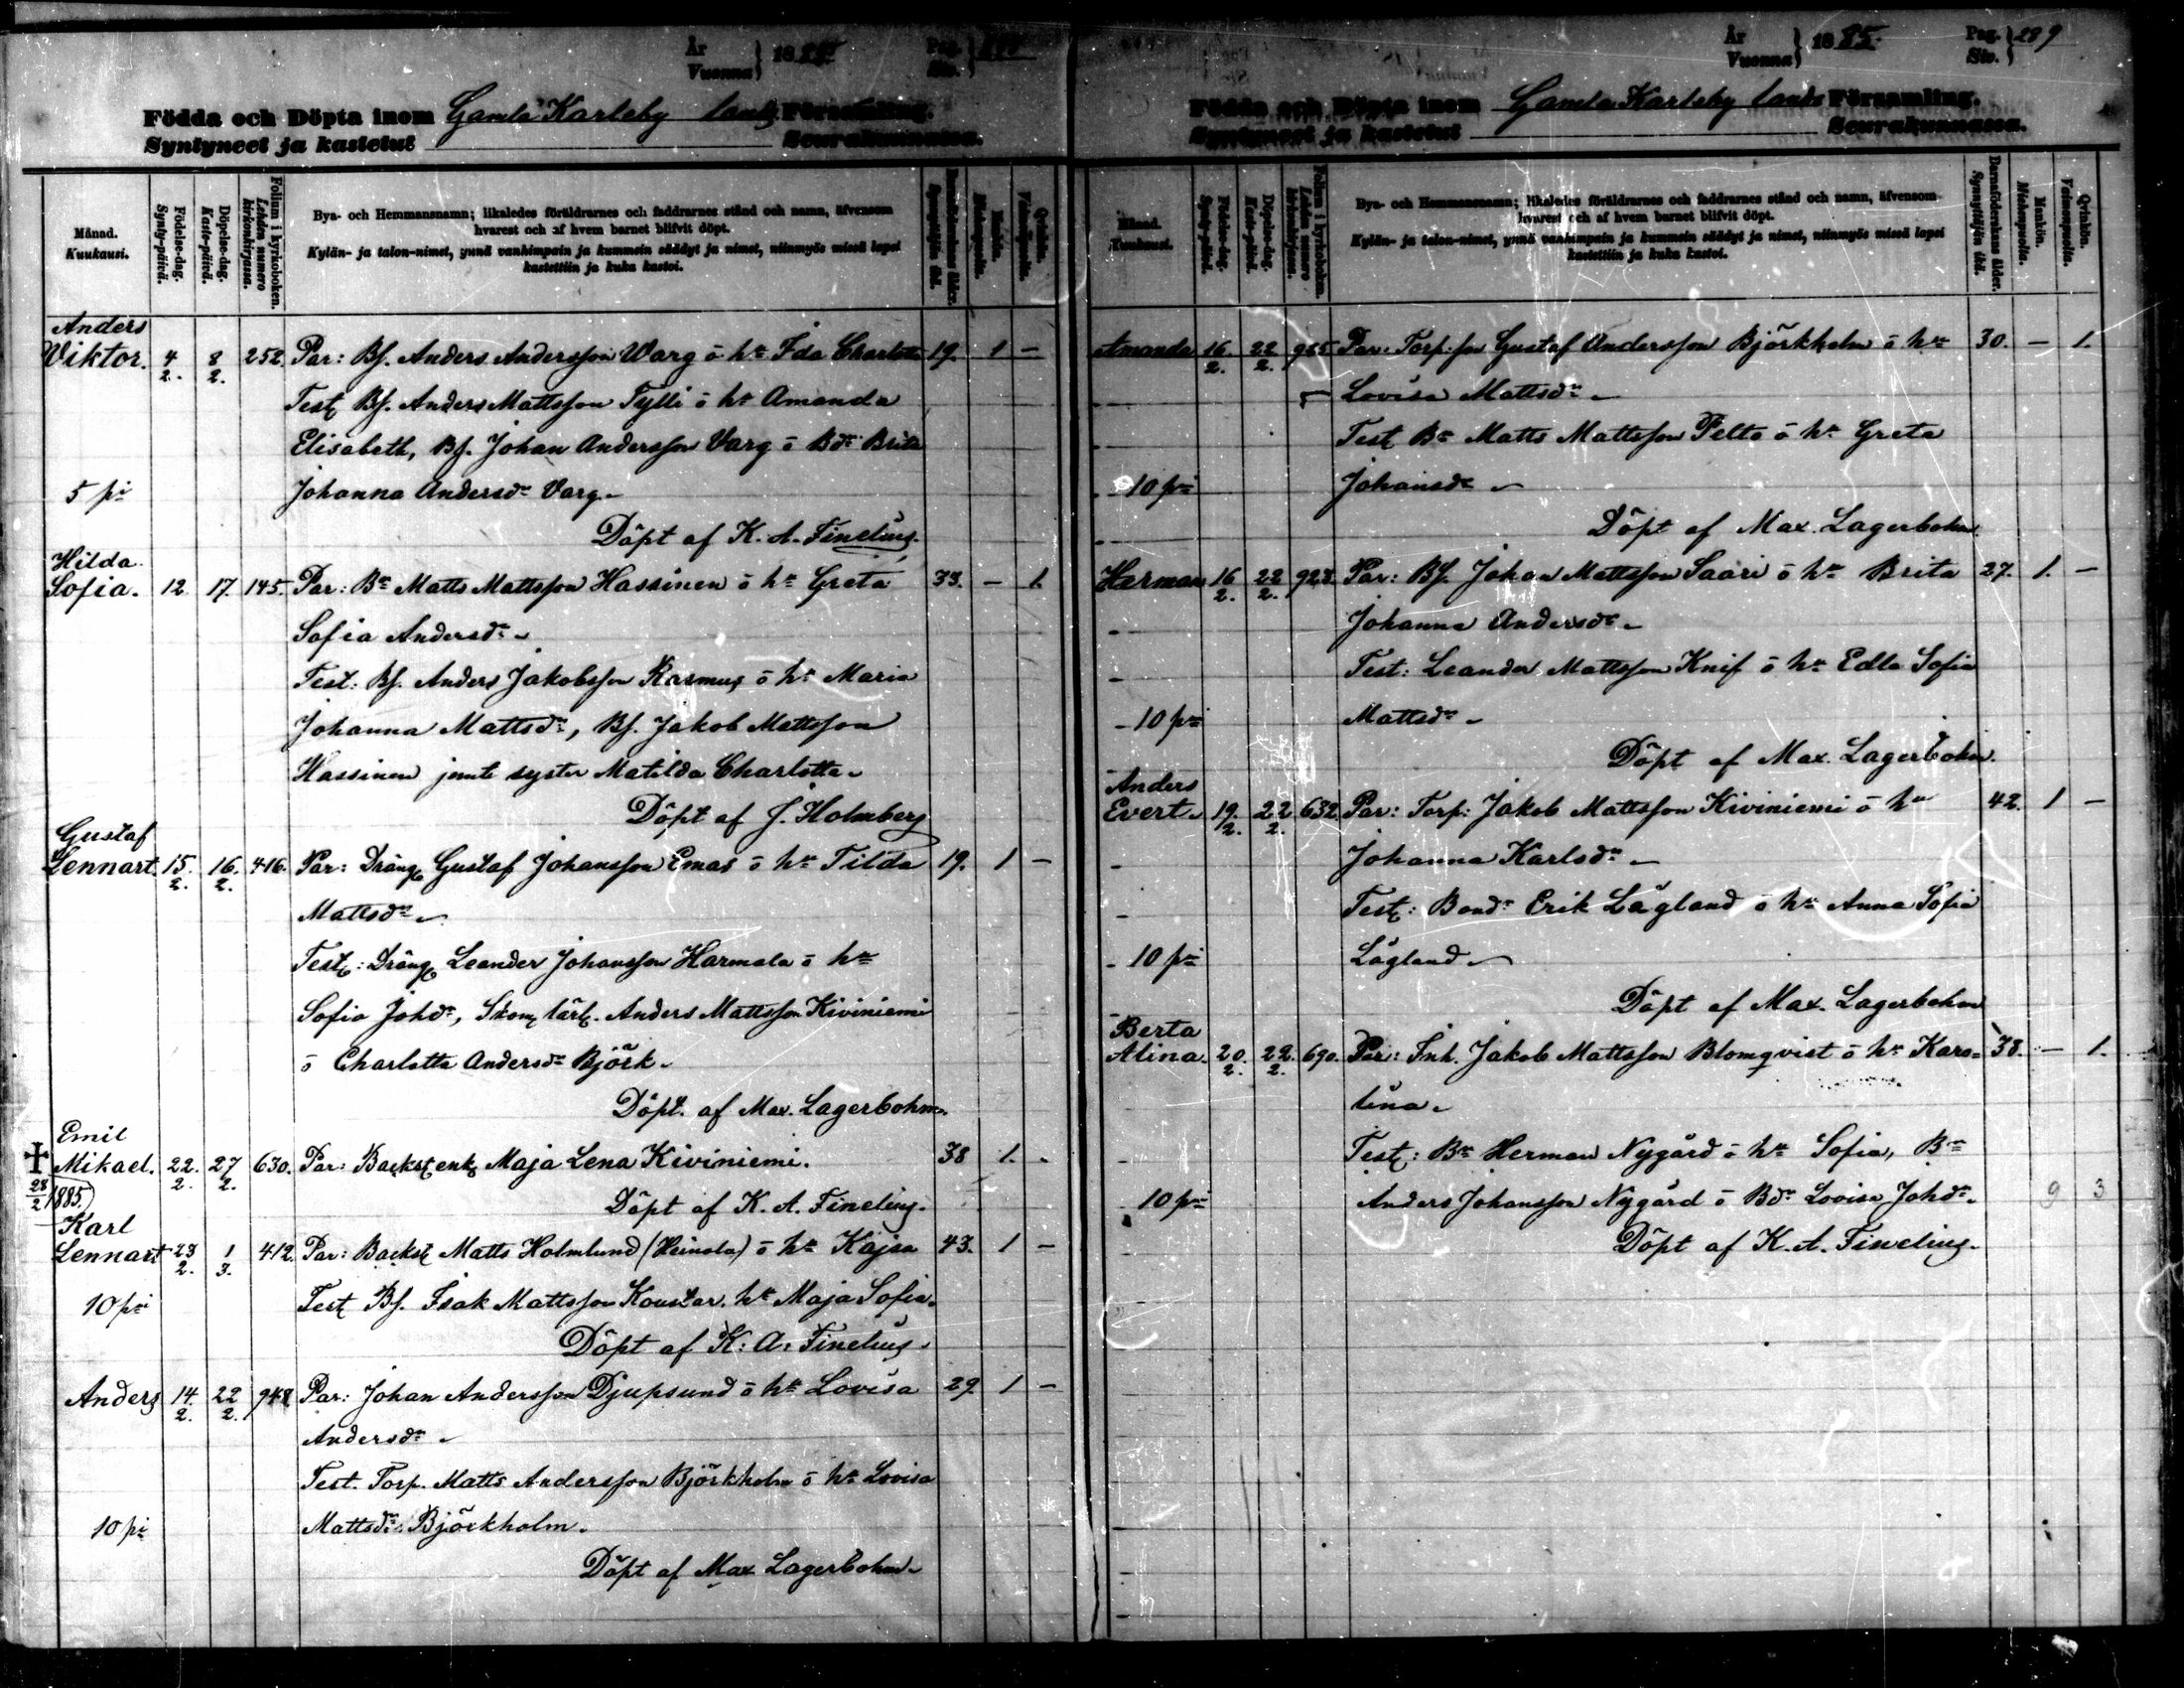 År
Vuonna } 1885
Pag.
Siv.
Födda och Döpta inom Gamla Karleby lands Församling.
Syntyneet ja kastetut Seurakunnassa.
Månad.
Kuukausi.
Födelse-dag.
Synty-päivä.
Döpelse-dag.
Kaste-päivä.
Folium i kyrkoboken.
Lehden numero kirkonkirjassa.
Bya- och Hemmansnamn; likaledes föräldrarnes och faddrarnes stånd och namn, äfvensom
hvarest och af hvem barnet blifvit döpt.
Kylän- ja talon-nimet, ynnä vanhimpain ja kummein säädyt ja nimet, niinmyös missä lapsi
kastettiin ja kuka kastoi.
Barnaföderskans ålder.
Synnyttäjän ikä.
Mankön.
Miehenpuolia.
Qvinkön.
Vaimonpuolia.
Anders
Viktor. 4/2. 8/2. 252. Par: Bs. Anders Andersson Warg o hu Ida Charlotta 19. 1 –
Test Bs. Anders Mattsson Tylli o hu Amanda
Elisabeth, Bs. Johan Andersson Varg o Bdr Brita
5 pi Johanna Andersdr Varg.
Döpt af K. A. Finelius.
Hilda
Sofia. 12 17. 145. Par: Bn Matts Mattsson Hassinen o hu Greta 33. – 1.
Sofia Andersdr
Test: Bs. Anders Jakobsson Rasmus o hu Maria
Johanna Mattsdr, Bs. Jakob Mattsson
Hassinen jemte syster Matilda Charlotta.
Döpt af J. Holmberg
Gustaf
Lennart 15/2. 16/2. 416. Par: Dräng Gustaf Johansson Emas o hu Tilda 19. 1 –
Mattsdr
Test: Dräng Leander Johansson Harmala o hu
Sofia Johdr, Skom lärl. Anders Mattsson Kiviniemi
o Charlotta Andersdr Björk.
Döpt. af Max. Lagerbohm.
Emil
† Mikael. 22/2. 27/2. 630. Par: Backst enk Maja Lena Kiviniemi. 38 1. –
28/2 1885.
Döpt af K. A. Finelius.
Karl
Lennart 23/2. 1/3. 412. Par: Backst Matts Holmlund (Heinola) o hu Kajsa 43. 1 –
10 pi Test Bs. Isak Mattsson Koustar. hu Maja Sofia.
Döpt af K. A. Finelius.
Anders 14/2. 22/2. 948 Par: Johan Andersson Djupsund o hu Lovisa 29 1 –
Andersdr
Test. Torp. Matts Andersson Björkholm o hu Lovisa
10 pi Mattsdr Björkholm.
Döpt af Max Lagerbohm.
År
Vuonna } 1885.
Pag.
Siv. } 289
Födda och Döpta inom Gamla Karleby lands Församling.
Syntyneet ja kastetut Seurakunnassa.
Månad.
Kuukausi.
Födelse-dag.
Synty-päivä.
Döpelse-dag.
Kaste-päivä.
Folium i kyrkoboken.
Lehden numero kirkonkirjassa.
Bya- och Hemmansnamn; likaledes föräldrarnes och faddrarnes stånd och namn, äfvensom
hvarest och af hvem barnet blifvit döpt.
Kylän- ja talon-nimet, ynnä vanhimpain ja kummein säädyt ja nimet, niinmyös missä lapsi
kastettiin ja kuka kastoi.
Barnaföderskans ålder.
Synnyttäjän ikä.
Mankön.
Miehenpuolia.
Qvinkön.
Vaimonpuolia.
Amanda 16/2. 22/2. 925 Par: Torp. son Gustaf Andersson Björkholm o hu 30. – 1.
Lovisa Mattsdr
Test Bn Matts Mattsson Pelto o hu Greta
10 pi Johansdr
Döpt af Max. Lagerbohm
Herman 16/2. 22/2. 923. Par: Bs. Johan Mattsson Saari o hu Brita 27. 1. –
Johanna Andersdr
Test: Leander Mattsson Knif o hu Edla Sofia
10 pi Mattsdr
Döpt af Max. Lagerbohm.
Anders
Evert. 19/2. 22/2. 632. Par: Torp: Jakob Mattsson Kiviniemi o hu 42. 1 –
Johanna Karlsdr
Test: Bond. Erik Lågland o hu Anna Sofia
10 pi Lågland
Döpt af Max. Lagerbohm
Berta
Alina. 20/2. 22/2. 690. Par: Inh. Jakob Mattsson Blomqvist o hu Karo= 38. – 1.
lina.
Test: Bn Herman Nygård o hu Sofia, Bn
10 pi Anders Johansson Nygård o Bdr Lovisa Johdr. 9 3
Döpt af K. A. Finelius.